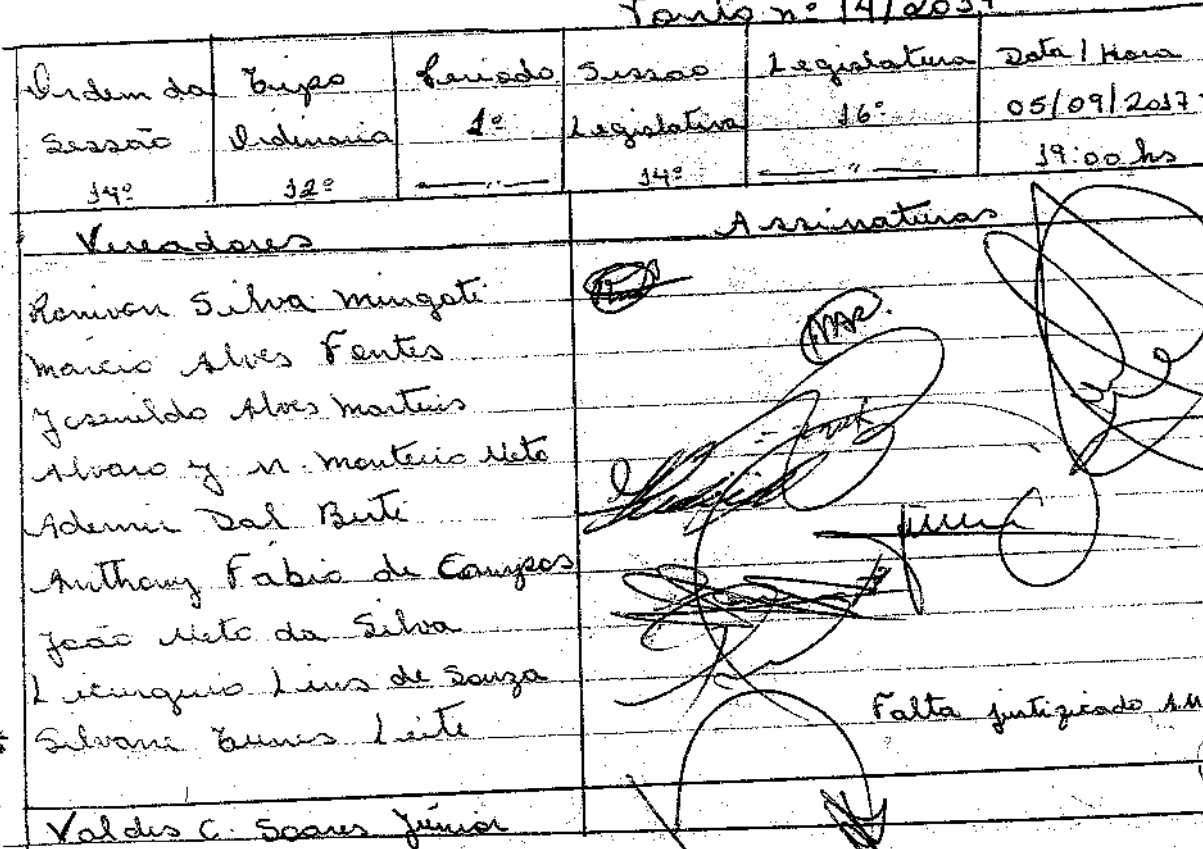 nº 14/2017
Ordem da Sessão 14º
Tipo Ordinaria 12º
Periodo 1º
Sessao Legislativa 14º
Legislatura 16º
Data / Hora 05/09/2017 19:00 hs
Vereadores Assinaturas
Ronivon Silva Mingoti
Marcio Alves Fontes
Josenildo Alves Martins
Alvaro J. N. Monteiro Neto
Ademir Dal Berti
Anthony Fabio de Campos
João Neto da Silva
Licurguio Lins de Souza
Silvane Tunes Leite Falta justificado
Valdis C. Soares Júnior